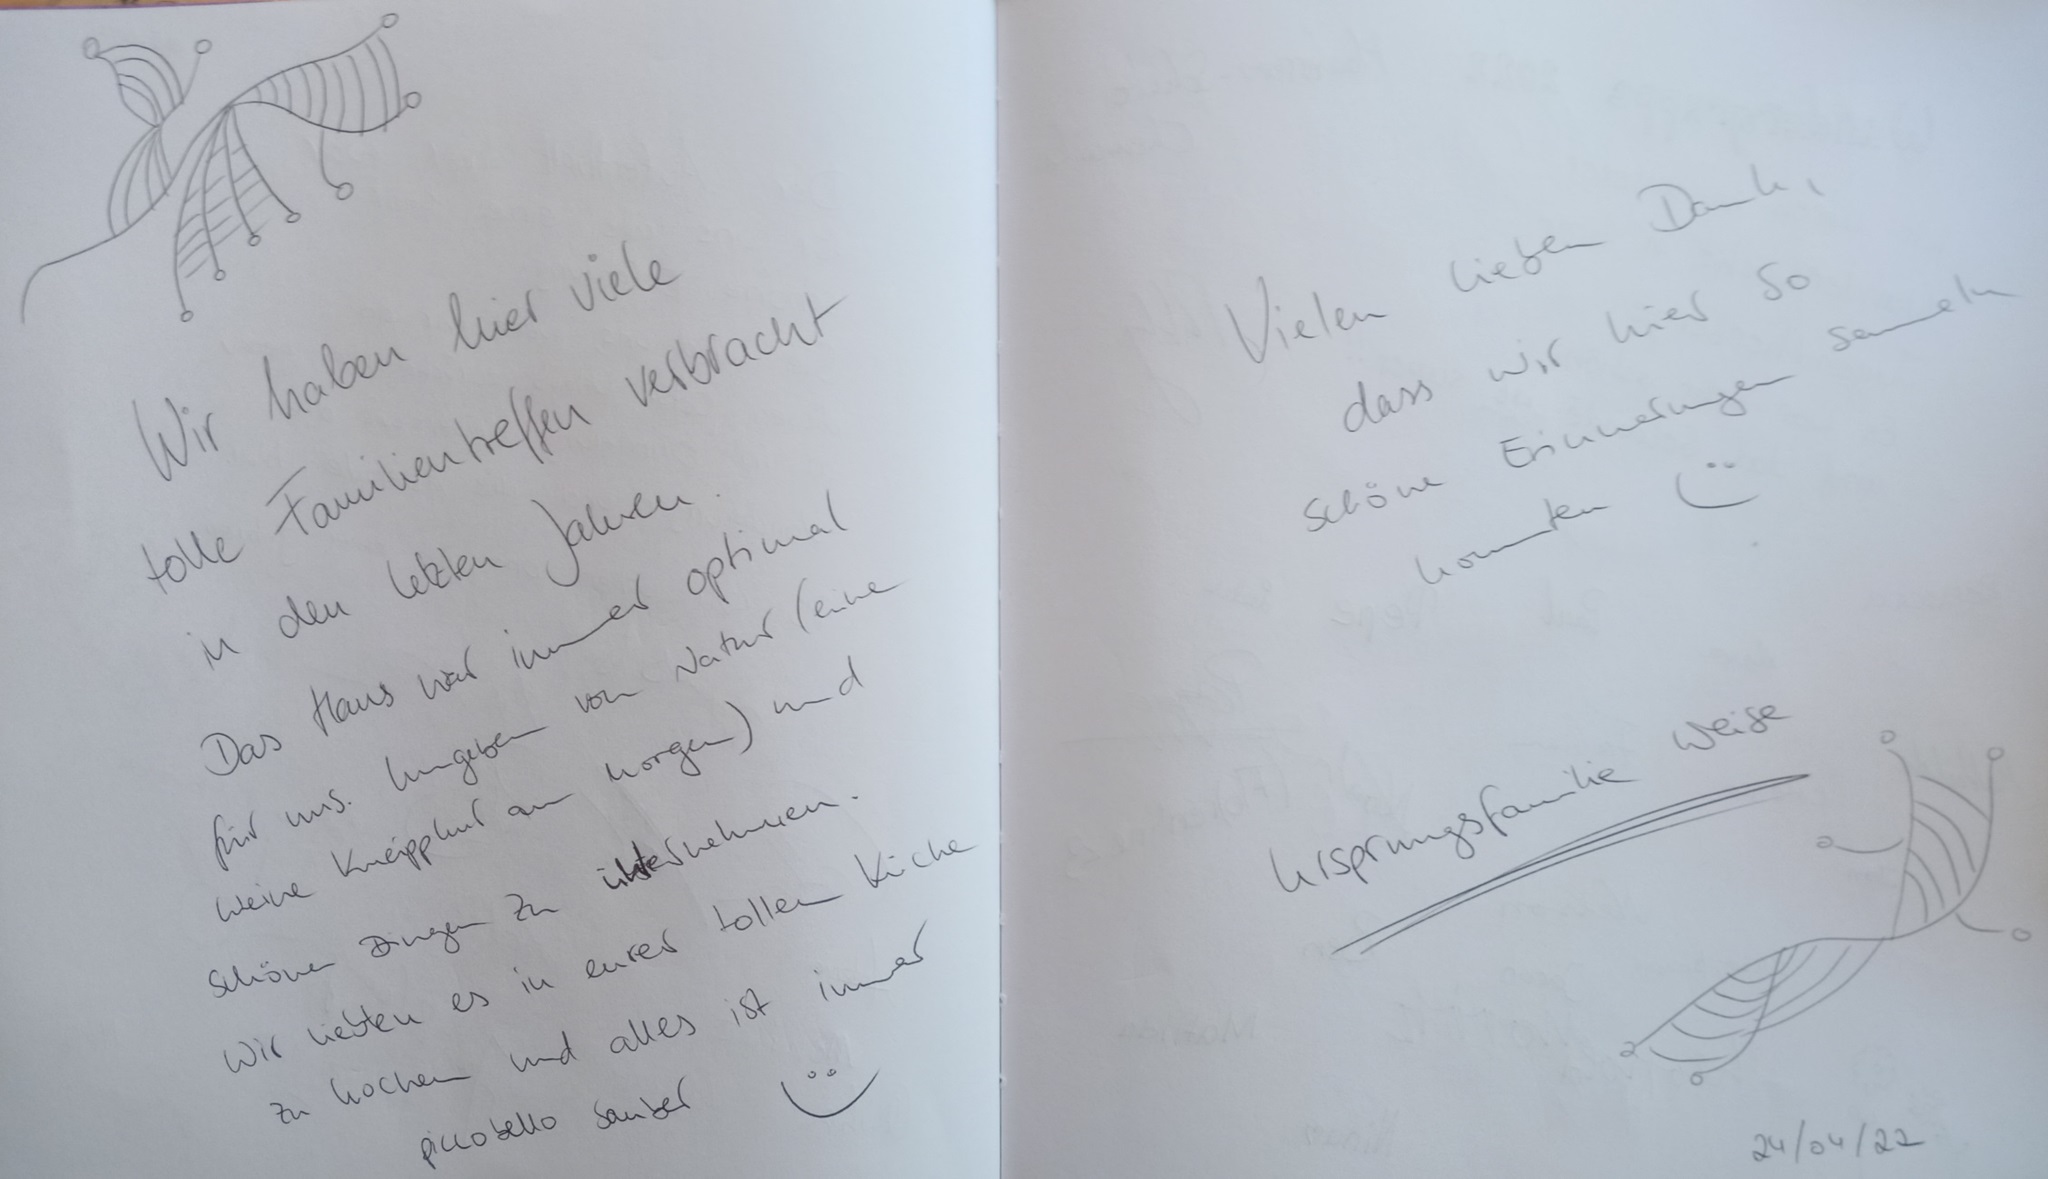 Wir haben hier viele
tolle Familientreffen verbracht
in den letzten Jahren.
Das Haus war immer optimal
für uns. Umgeben von Natur (eine
kleine Kneippkur am Morgen) und
schönen Dingen zu unternehmen.
Wir liebten es in eurer tollen Küche
zu kochen und alles ist immer
piccobello sauber
Vielen lieben Dank,
dass wir hier so
schöne Erinnerungen sammeln
konnten
Ursprungsfamilie Weise
24/04/22